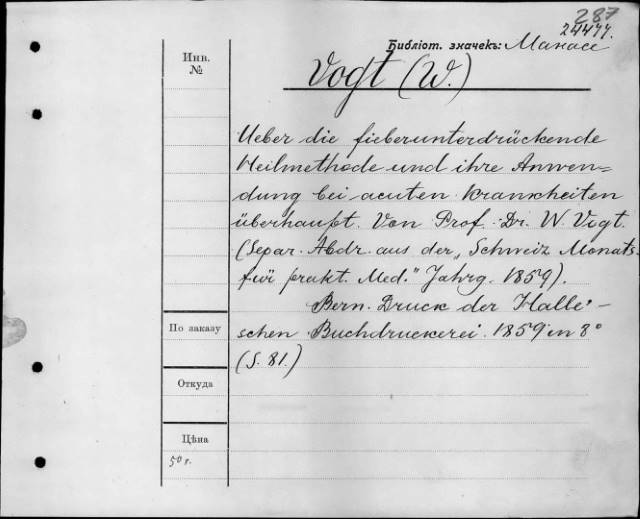 287
24477.
Библіот. значекъ: Манасс
Инв.
№
Vogt (W.)
Ueber die fieberunterdrückende
Heilmethode und ihre Anwen=
dung bei acuten Krankheiten
überhaupt. Von Prof. Dr. W. Vogt.
(Separ. Abdr. aus der „Schweiz Monats.
für prakt. Med." Jahrg. 1859).
Bern. Druck der Halle'-
schen Buchdruckerei. 1859 in 8°
(S. 81.)
По заказу
Откуда
Цѣна
50 г.